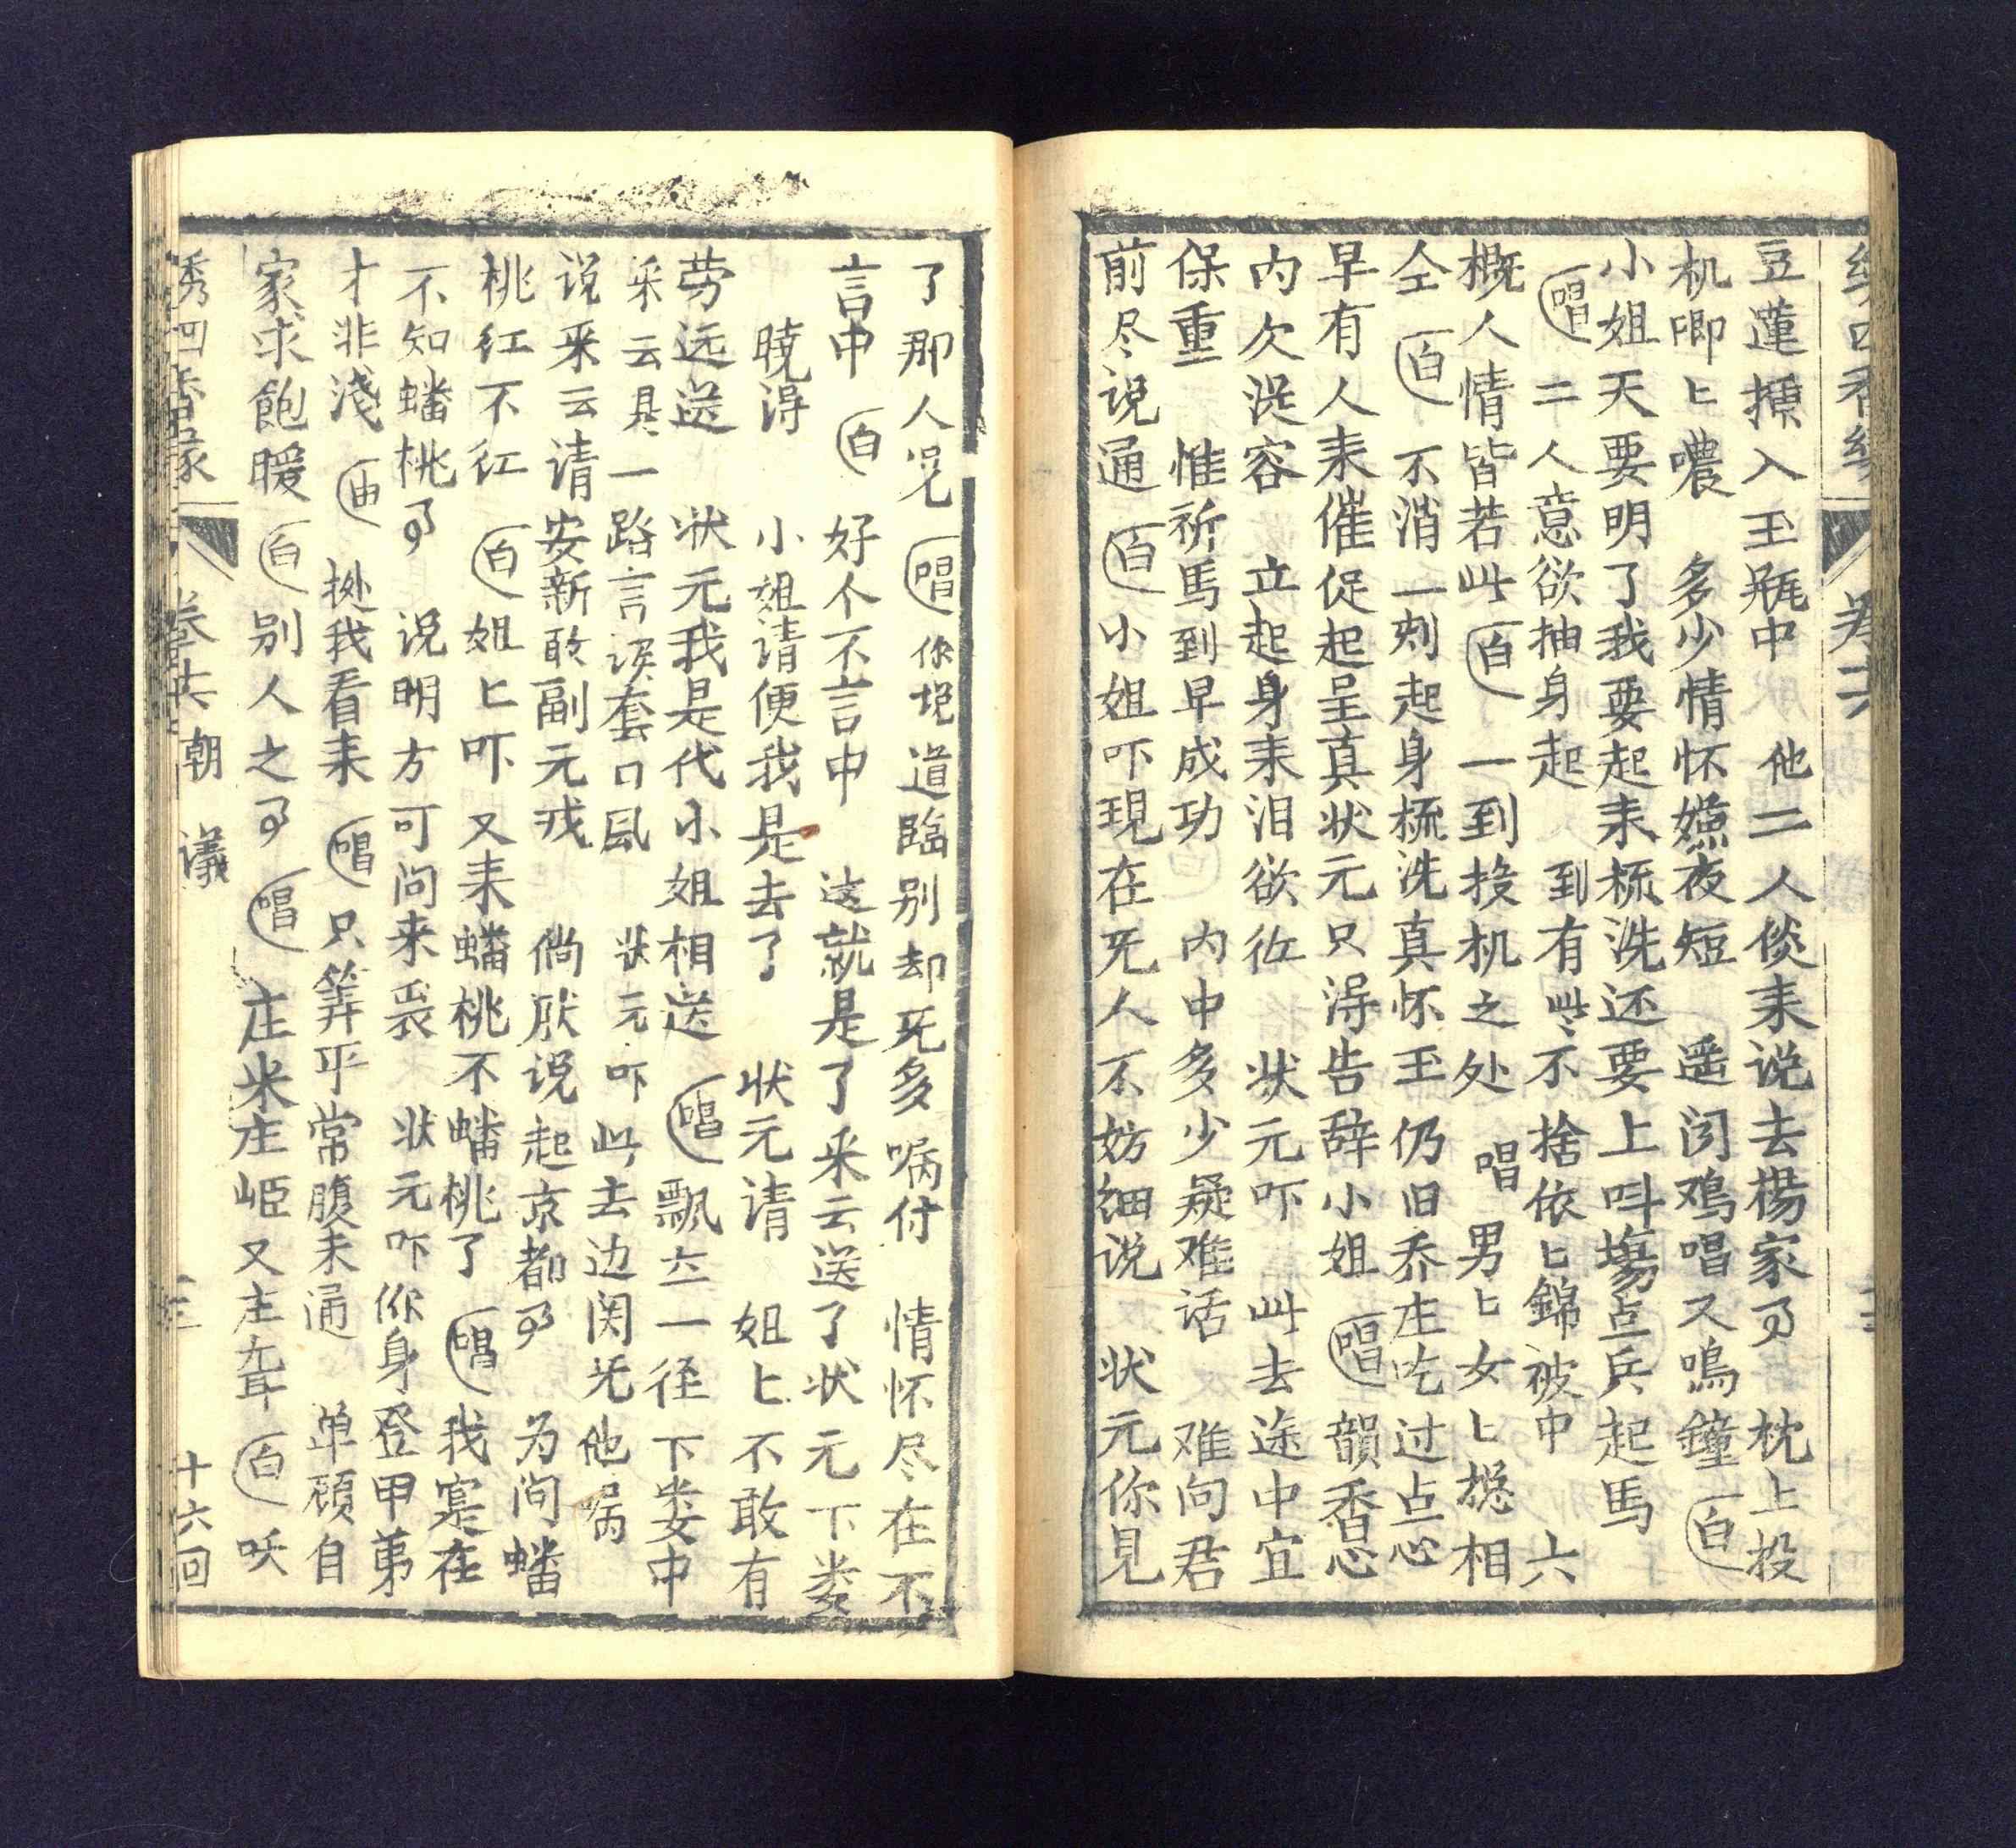 豆蓮插入玉瓶中 他二人倓耒说去楊家了 枕上投
机唧〻噥 多少情怀嫌夜短 遥闵鸡唱又鳴鐘 白
小姐天要明了我要起耒梳洗还要上呌塲点兵起馬
唱 二人意欲抽身起 到有些不捨依〻錦被中 六
概人情皆若此 白 一到投机之处 唱 男〻女〻摠相
仝 白 不消一刻起身梳洗真怀玉仍旧乔庄吃过点心
早有人耒催促起呈真状元只淂告辞小姐 唱 韻香心
内欠従容 立起身耒泪欲 状元吓 此去途中宜
保重 惟祈馬到早成功 内中多少疑难话 难向君
前尽说通 白 小姐吓現在旡人不妨细说 状元你見
了那人児 唱 你説道臨别却旡多嘱付 情怀尽在不
言中 白 好个不言中 这就是了采云送了状元下娄
暁淂 小姐请便我是去了 状元请 姐〻不敢有
劳远送 状元我是代小姐相送 唱 飘㐳一径下娄中
采云具一路言误套口凨 状元吓此去边関旡他嘱
说采云请安新敢副元戎 倘厌说起京都了 为问蟠
桃红不红 白 姐〻吓又耒蟠桃不蟠桃了 唱 我寔在
不知蟠桃了 说明方可问来衷 状元吓你身登甲苐
才非淺 白 拠我看耒 唱 只筭乎常腹未通 单頋自
家求飽暖 白 别人之了 唱 庄米庄㛂又庄聋 白 呋
秀四香缘 卷六 朝 議 十六回